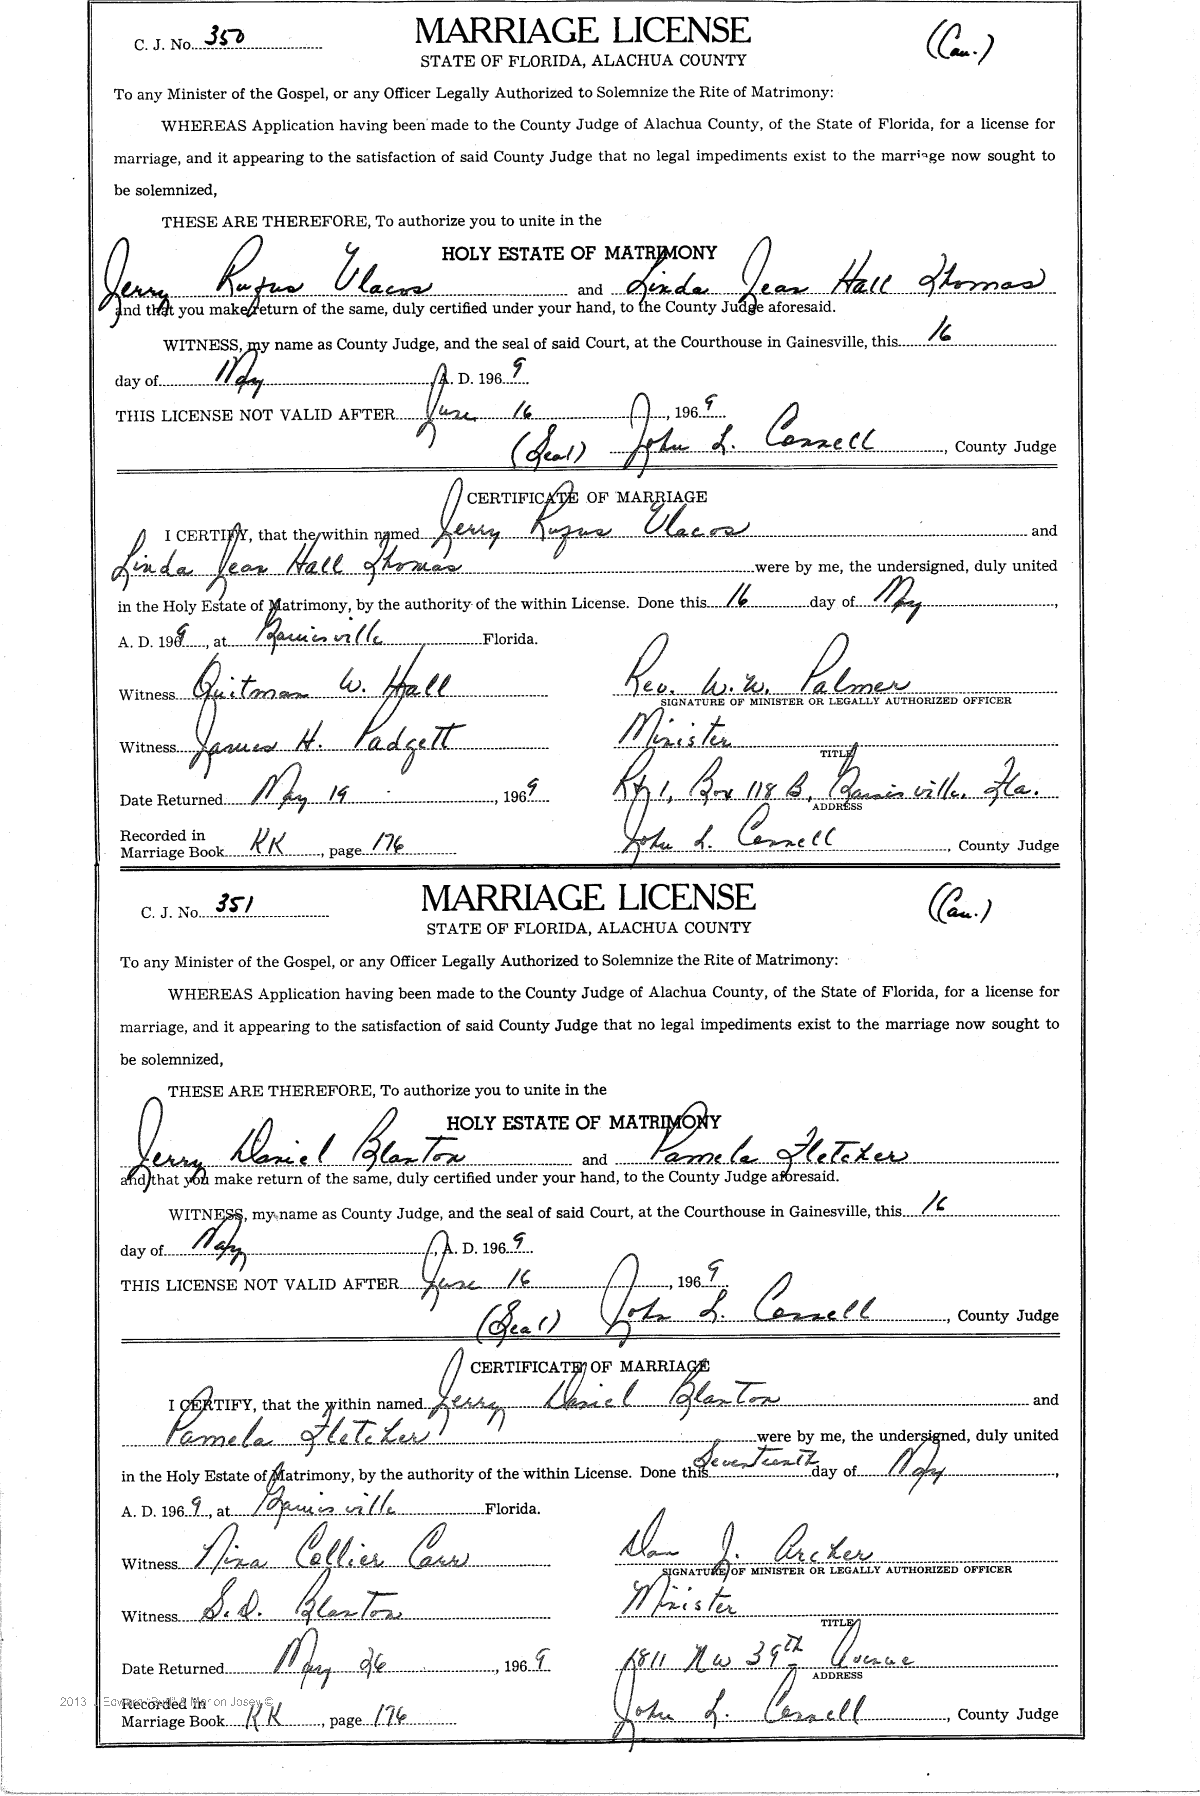 C. J. No. 350
MARRIAGE LICENSE
(Cau.)
STATE OF FLORIDA, ALACHUA COUNTY
To any Minister of the Gospel, or any Officer Legally Authorized to Solemnize the Rite of Matrimony:
WHEREAS Application having been made to the County Judge of Alachua County, of the State of Florida, for a license for
marriage, and it appearing to the satisfaction of said County Judge that no legal impediments exist to the marriage now sought to
be solemnized,
THESE ARE THEREFORE, To authorize you to unite in the
HOLY ESTATE OF MATRIMONY
Jerry Rufus Vlacos and Linda Jean Hall Thomas
and that you make return of the same, duly certified under your hand, to the County Judge aforesaid.
WITNESS, my name as County Judge, and the seal of said Court, at the Courthouse in Gainesville, this 16
day of May A. D. 1969
THIS LICENSE NOT VALID AFTER June 16, 1969
(Seal) John L. Connell, County Judge
CERTIFICATE OF MARRIAGE
I CERTIFY, that the within named Jerry Rufus Vlacos and
Linda Jean Hall Thomas were by me, the undersigned, duly united
in the Holy Estate of Matrimony, by the authority of the within License. Done this 16 day of May,
A. D. 1969, at Gainesville Florida.
Witness Quitman W. Hall Rev. W. W. Palmer
SIGNATURE OF MINISTER OR LEGALLY AUTHORIZED OFFICER
Witness James H. Padgett Minister
TITLE
Date Returned May 19, 1969 Rt 1, Box 118 B, Gainesville, Fla.
ADDRESS
Recorded in
Marriage Book KK, page 176 John L. Connell, County Judge
C. J. No. 351
MARRIAGE LICENSE
(Cau.)
STATE OF FLORIDA, ALACHUA COUNTY
To any Minister of the Gospel, or any Officer Legally Authorized to Solemnize the Rite of Matrimony:
WHEREAS Application having been made to the County Judge of Alachua County, of the State of Florida, for a license for
marriage, and it appearing to the satisfaction of said County Judge that no legal impediments exist to the marriage now sought to
be solemnized,
THESE ARE THEREFORE, To authorize you to unite in the
HOLY ESTATE OF MATRIMONY
Jerry Daniel Blanton and Pamela Fletcher
and that you make return of the same, duly certified under your hand, to the County Judge aforesaid.
WITNESS, my name as County Judge, and the seal of said Court, at the Courthouse in Gainesville, this 16
day of May, A. D. 1969
THIS LICENSE NOT VALID AFTER June 16, 1969
(Seal) John L. Connell, County Judge
CERTIFICATE OF MARRIAGE
I CERTIFY, that the within named Jerry Daniel Blanton and
Pamela Fletcher were by me, the undersigned, duly united
in the Holy Estate of Matrimony, by the authority of the within License. Done this Seventeenth day of May,
A. D. 1969, at Gainesville Florida.
Witness Nina Collier Carr Dan J. Archer
SIGNATURE OF MINISTER OR LEGALLY AUTHORIZED OFFICER
Witness S. D. Blanton Minister
TITLE
Date Returned May 26, 1969 1811 NW 39th Avenue
ADDRESS
2013 Josey ©
Recorded in
Marriage Book KK, page 176 John L. Connell, County Judge